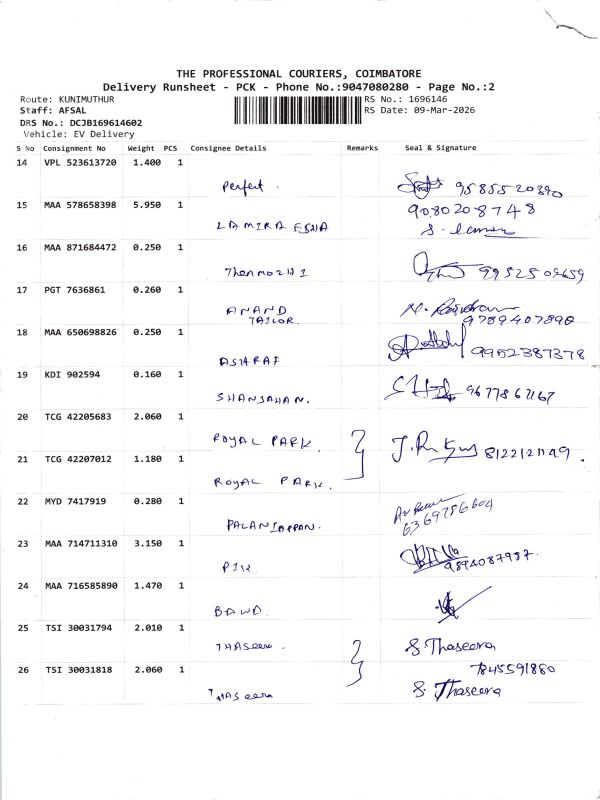 THE PROFESSIONAL COURIERS, COIMBATORE
Delivery Runsheet - PCK - Phone No.:9047080280 - Page No.:2
Route: KUNIMUTHUR
RS No.: 1696146
Staff: AFSAL
RS Date: 09-Mar-2026
DRS No.: DCJB169614602
Vehicle: EV Delivery
S No Consignment No Weight PCS Consignee Details Remarks Seal & Signature
14 VPL 523613720 1.400 1
Perfect. 9585520390
15 MAA 578658398 5.950 1 9080208748
LAMIRA ESHA
16 MAA 871684472 0.250 1
Thenmozhi 9952509659
17 PGT 7636861 0.260 1
ANAND
TAILOR. 9789407890
18 MAA 650698826 0.250 1
ASHRAF 9952387378
19 KDI 902594 0.160 1
SHANJAHAN. 9677867167
20 TCG 42205683 2.060 1
ROYAL PARK. 8122121149.
21 TCG 42207012 1.180 1
ROYAL PARK.
22 MYD 7417919 0.280 1
PALANIAPPAN. 6369786604
23 MAA 714711310 3.150 1
9894087987.
24 MAA 716585890 1.470 1
25 TSI 30031794 2.010 1
THASeera. S. Thaseera
26 TSI 30031818 2.060 1 7845591880
THASeera S. Thaseera